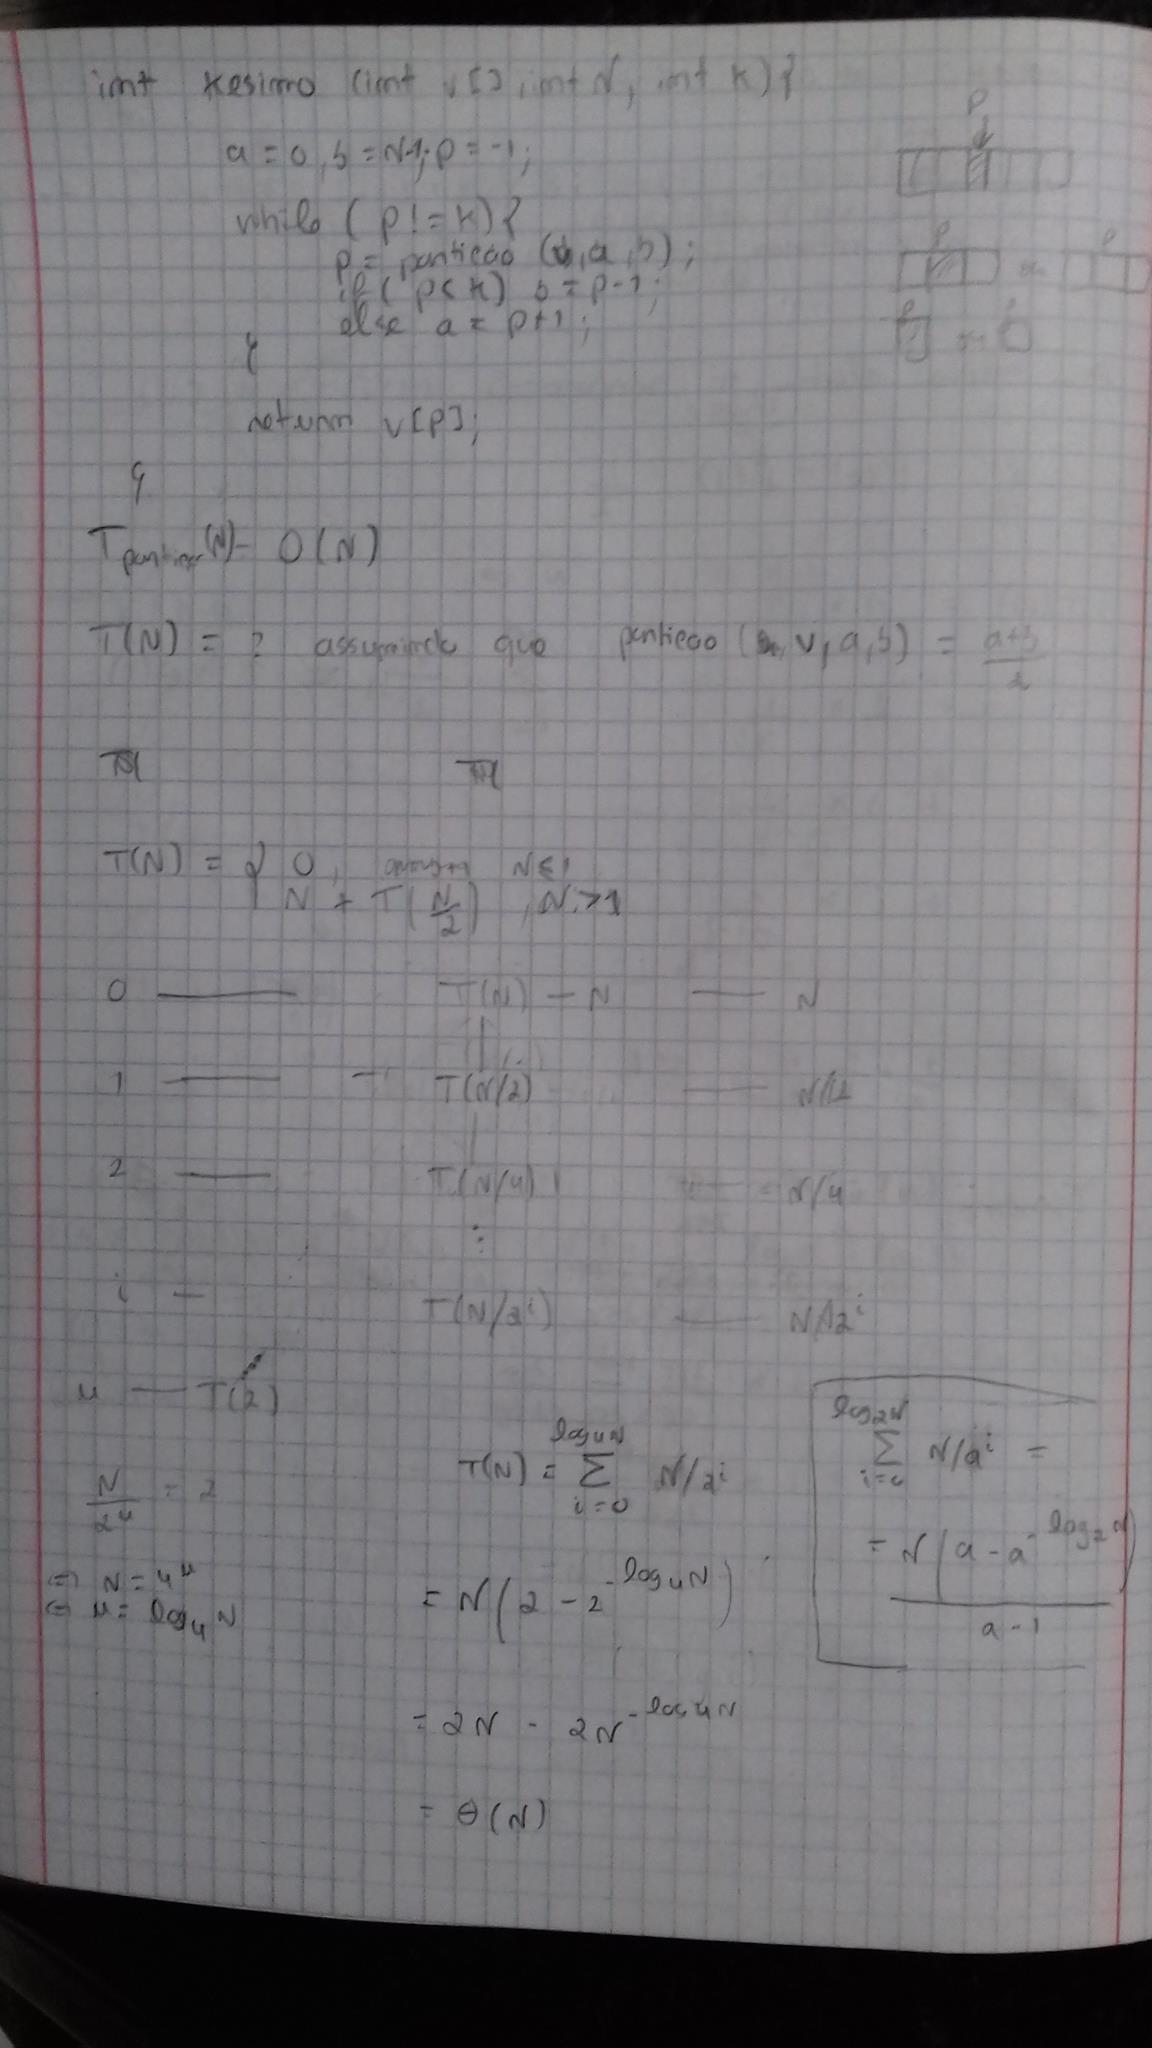 int kesimo (int v[], int N, int k) {
a = 0, b = N-1, p = -1;
p
while ( p != k) {
p = particao (v, a, b);
p p
if ( p < k) b = p-1;
else a = p+1;
}
return v[p];
}
T particao (N) = O(N)
T(N) = ? assumindo que particao (v, a, b) = (a+b)/2
T(N) = { 0, N ≤ 1
N + T(N/2) , N > 1
0 — T(N) — N — N
1 — T(N/2) — N/2
2 — T(N/4) — N/4
⋮
i — T(N/2^i) — N/2^i
u — T(2)
N/2^u = 2
⇔ N = 4^u
⇔ u = log_4 N
T(N) = Σ_{i=0}^{log_4 N} N/2^i
= N(2 - 2^{-log_4 N})
= 2N - 2N^{-log_4 N}
= Θ(N)
Σ_{i=0}^{log_2 N} N/a^i =
= N(a - a^{-log_2 N}) / (a - 1)